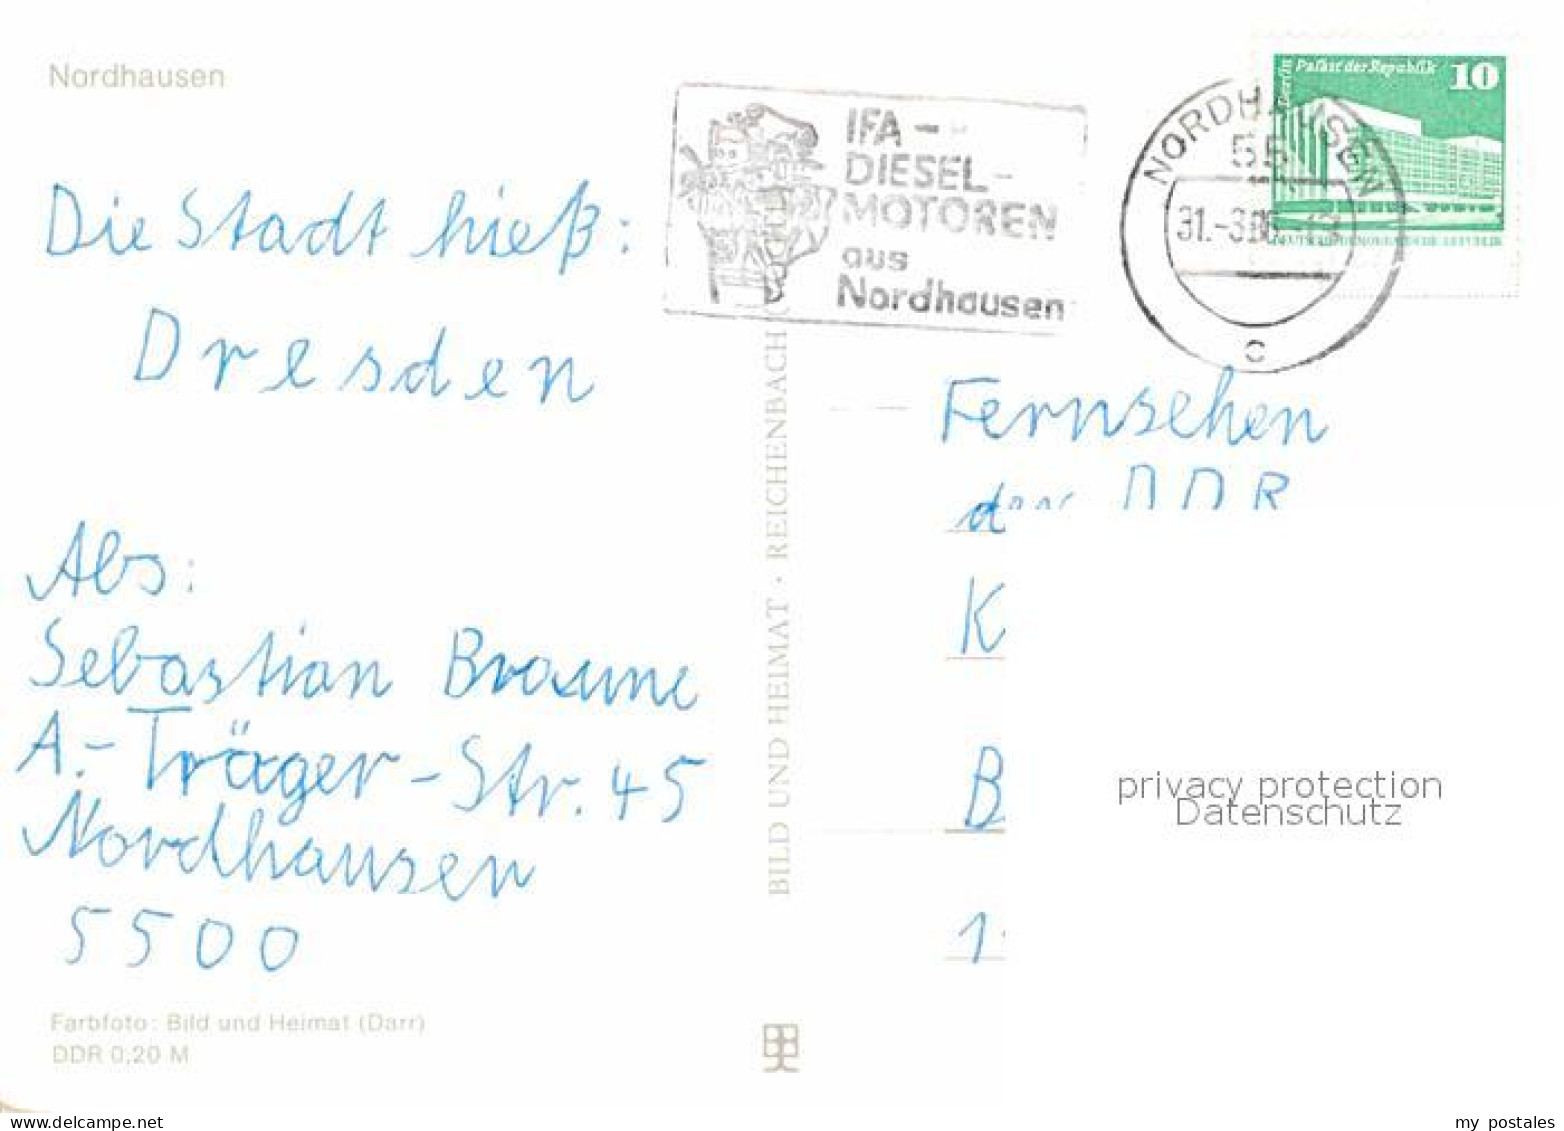 Nordhausen
IFA-
DIESEL-
MOTOREN
aus
Nordhausen
NORDHAUSEN
55
31.-3.
c
Berlin Palast der Republik 10
DEUTSCHE DEMOKRATISCHE REPUBLIK
Die Stadt hieß:
Dresden
Abs:
Sebastian Braune
A.-Träger-Str. 45
Nordhausen
5500
Farbfoto: Bild und Heimat (Darr)
DDR 0,20 M
BILD UND HEIMAT · REICHENBACH
Fernsehen
der DDR
K
B
1
privacy protection
Datenschutz
my postales.com
my postales